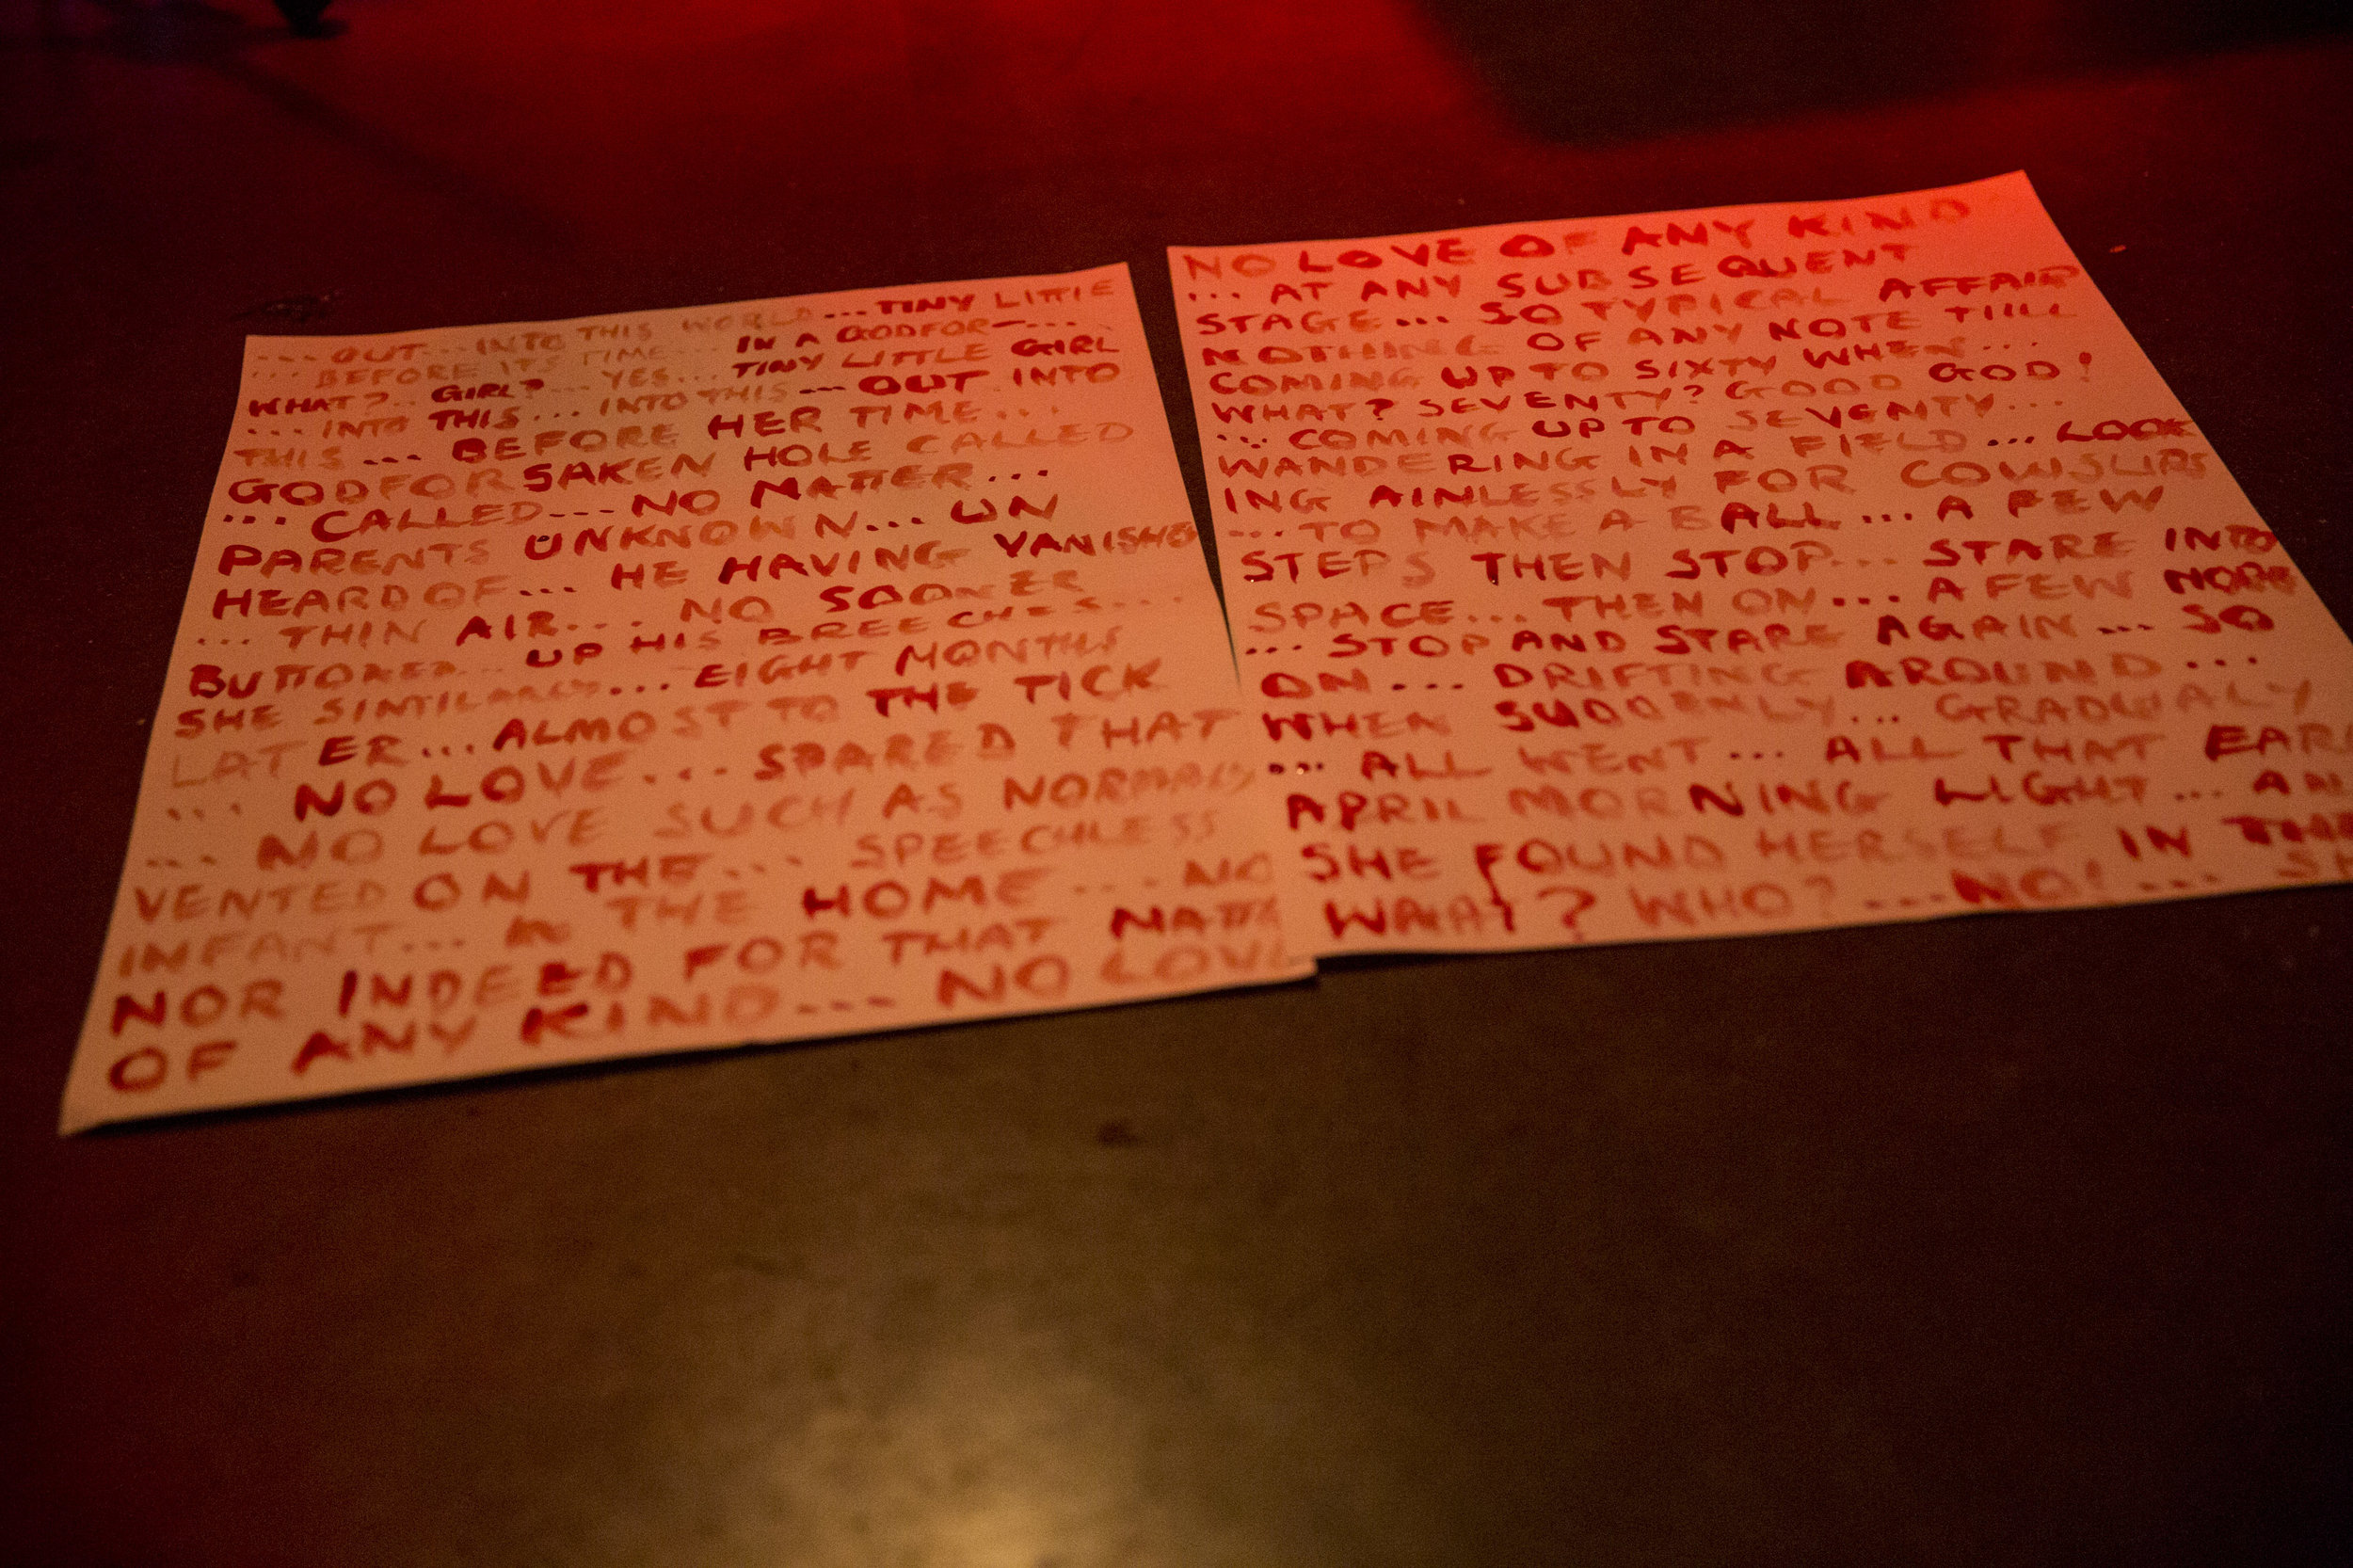 ... OUT... INTO THIS WORLD... TINY LITTLE
... BEFORE ITS TIME... IN A GODFOR—...
WHAT?.. GIRL?... YES... TINY LITTLE GIRL
... INTO THIS... INTO THIS... OUT INTO
THIS... BEFORE HER TIME...
GODFORSAKEN HOLE CALLED
... CALLED... NO MATTER...
PARENTS UNKNOWN... UN
HEARD OF... HE HAVING VANISHE
... THIN AIR... NO SOONER
BUTTONED... UP HIS BREECHES...
SHE ... EIGHT MONTHS
LATER... ALMOST TO THE TICK
... NO LOVE... SPARED THAT
... NO LOVE SUCH AS NORMALLY
VENTED ON THE... SPEECHLESS
INFANT... IN THE HOME... NO
NOR INDEED FOR THAT MATTE
OF ANY KIND... NO LOVE
NO LOVE OF ANY KIND
... AT ANY SUBSEQUENT
STAGE... SO TYPICAL AFFAIR
NOTHING OF ANY NOTE TILL
COMING UP TO SIXTY WHEN...
WHAT? SEVENTY? GOOD GOD!
... COMING UP TO SEVENTY...
WANDERING IN A FIELD... LOOK
ING AINLESSLY FOR COWSLIPS
... TO MAKE A BALL... A FEW
STEPS THEN STOP... STARE INTO
SPACE... THEN ON... A FEW MORE
... STOP AND STARE AGAIN... SO
ON... DRIFTING AROUND...
WHEN SUDDENLY... GRADUALY
... ALL WENT... ALL THAT EAR
APRIL MORNING LIGHT... AN
SHE FOUND HERSELF IN THE
WHAT? WHO?... NO!... SH